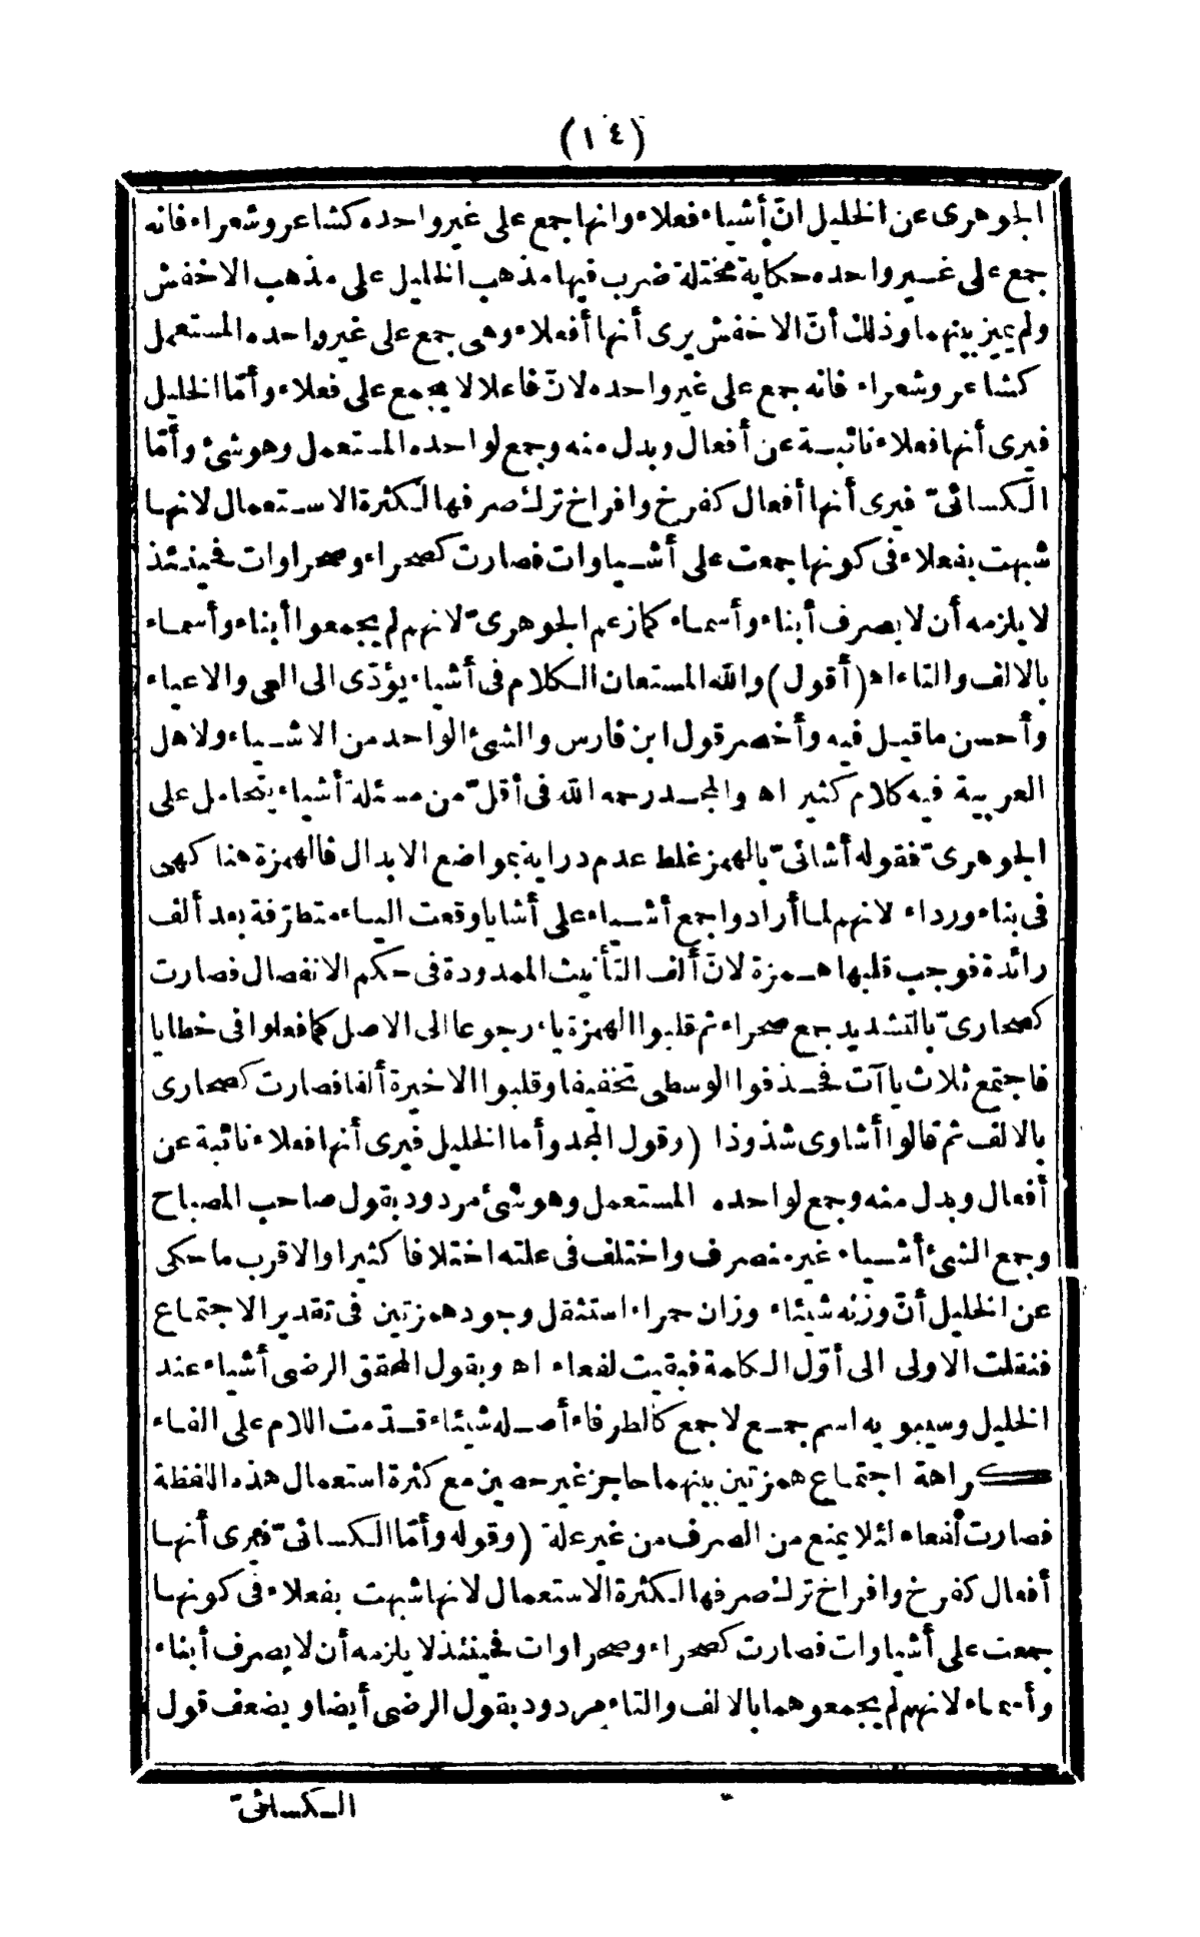 (١٤)
الجوهرى عن الخليل انّ أشياء فعلاء وانها جمع على غير واحده كشاعر وشعراء فانه
جمع على غير واحده حكاية مختلة ضرب فيها مذهب الخليل على مذهب الاخفش
ولم يميز بينهما وذلك أنّ الاخفش يرى أنها أفعلاء وهى جمع على غير واحده المستعمل
كشاعر وشعراء فانه جمع على غير واحده لانّ فاعلا لا يجمع على فعلاء وأمّا الخليل
فيرى أنها فعلاء نائبة عن أفعال وبدل منه وجمع لواحده المستعمل وهو شئ وأمّا
الكسائىّ فيرى أنها أفعال كفرخ وافراخ ترك صرفها لكثرة الاستعمال لانها
شبهت بفعلاء فى كونها جمعت على أشياوات فصارت كصحراء وصحراوات فحينئذ
لا يلزمه أن لا يصرف أبناء وأسماء كما زعم الجوهرىّ لانهم لم يجمعوا أبناء وأسماء
بالالف والتاء اه (أقول) والله المستعان الكلام فى أشياء يؤدّى الى العى والاعياء
وأحسن ما قيل فيه وأخصر قول ابن فارس والشئ الواحد من الاشياء ولاهل
العربية فيه كلام كثير اه والمجد رحمه الله فى أقلّ من مسئلة أشياء يتحامل على
الجوهرىّ فقوله أشائىّ بالهمز غلط عدم دراية بمواضع الابدال فالهمزة هنا كهى
فى بناء ورداء لانهم لما أرادوا جمع أشياء على أشايا وقعت الياء متطرّفة بعد ألف
زائدة فوجب قلبها همزة لانّ ألف التأنيث الممدودة فى حكم الانفصال فصارت
كصحارىّ بالتشديد جمع صحراء ثم قلبوا الهمزة ياء رجوعا الى الاصل كما فعلوا فى خطايا
فاجتمع ثلاث ياآت فحذفوا الوسطى تخفيفا وقلبوا الاخيرة ألفا فصارت كصحارى
بالالف ثم قالوا أشاوى شذوذا (وقول المجد وأما الخليل فيرى أنها فعلاء نائبة عن
أفعال وبدل منه وجمع لواحده المستعمل وهو شئ مردود بقول صاحب المصباح
وجمع الشئ أشياء غير منصرف واختلف فى علته اختلافا كثيرا والاقرب ما حكى
عن الخليل أنّ وزنه شيئاء وزان حمراء استثقل وجود همزتين فى تقدير الاجتماع
فنقلت الاولى الى أوّل الكلمة فبقيت لفعاء اه وبقول المحقق الرضى أشياء عند
الخليل وسيبويه اسم جمع لا جمع كالطرفاء أصله شيئاء قدّمت اللام على الفاء
كراهة اجتماع همزتين بينهما حاجز غير حصين مع كثرة استعمال هذه اللفظة
فصارت لفعاء لئلا يمنع من الصرف من غير علة (وقوله وأمّا الكسائىّ فيرى أنها
أفعال كفرخ وافراخ ترك صرفها لكثرة الاستعمال لانها شبهت بفعلاء فى كونها
جمعت على أشياوات فصارت كصحراء وصحراوات فحينئذ لا يلزمه أن لا يصرف أبناء
وأسماء لانهم لم يجمعوهما بالالف والتاء مردود بقول الرضى أيضا ويضعف قول
الكسائىّ